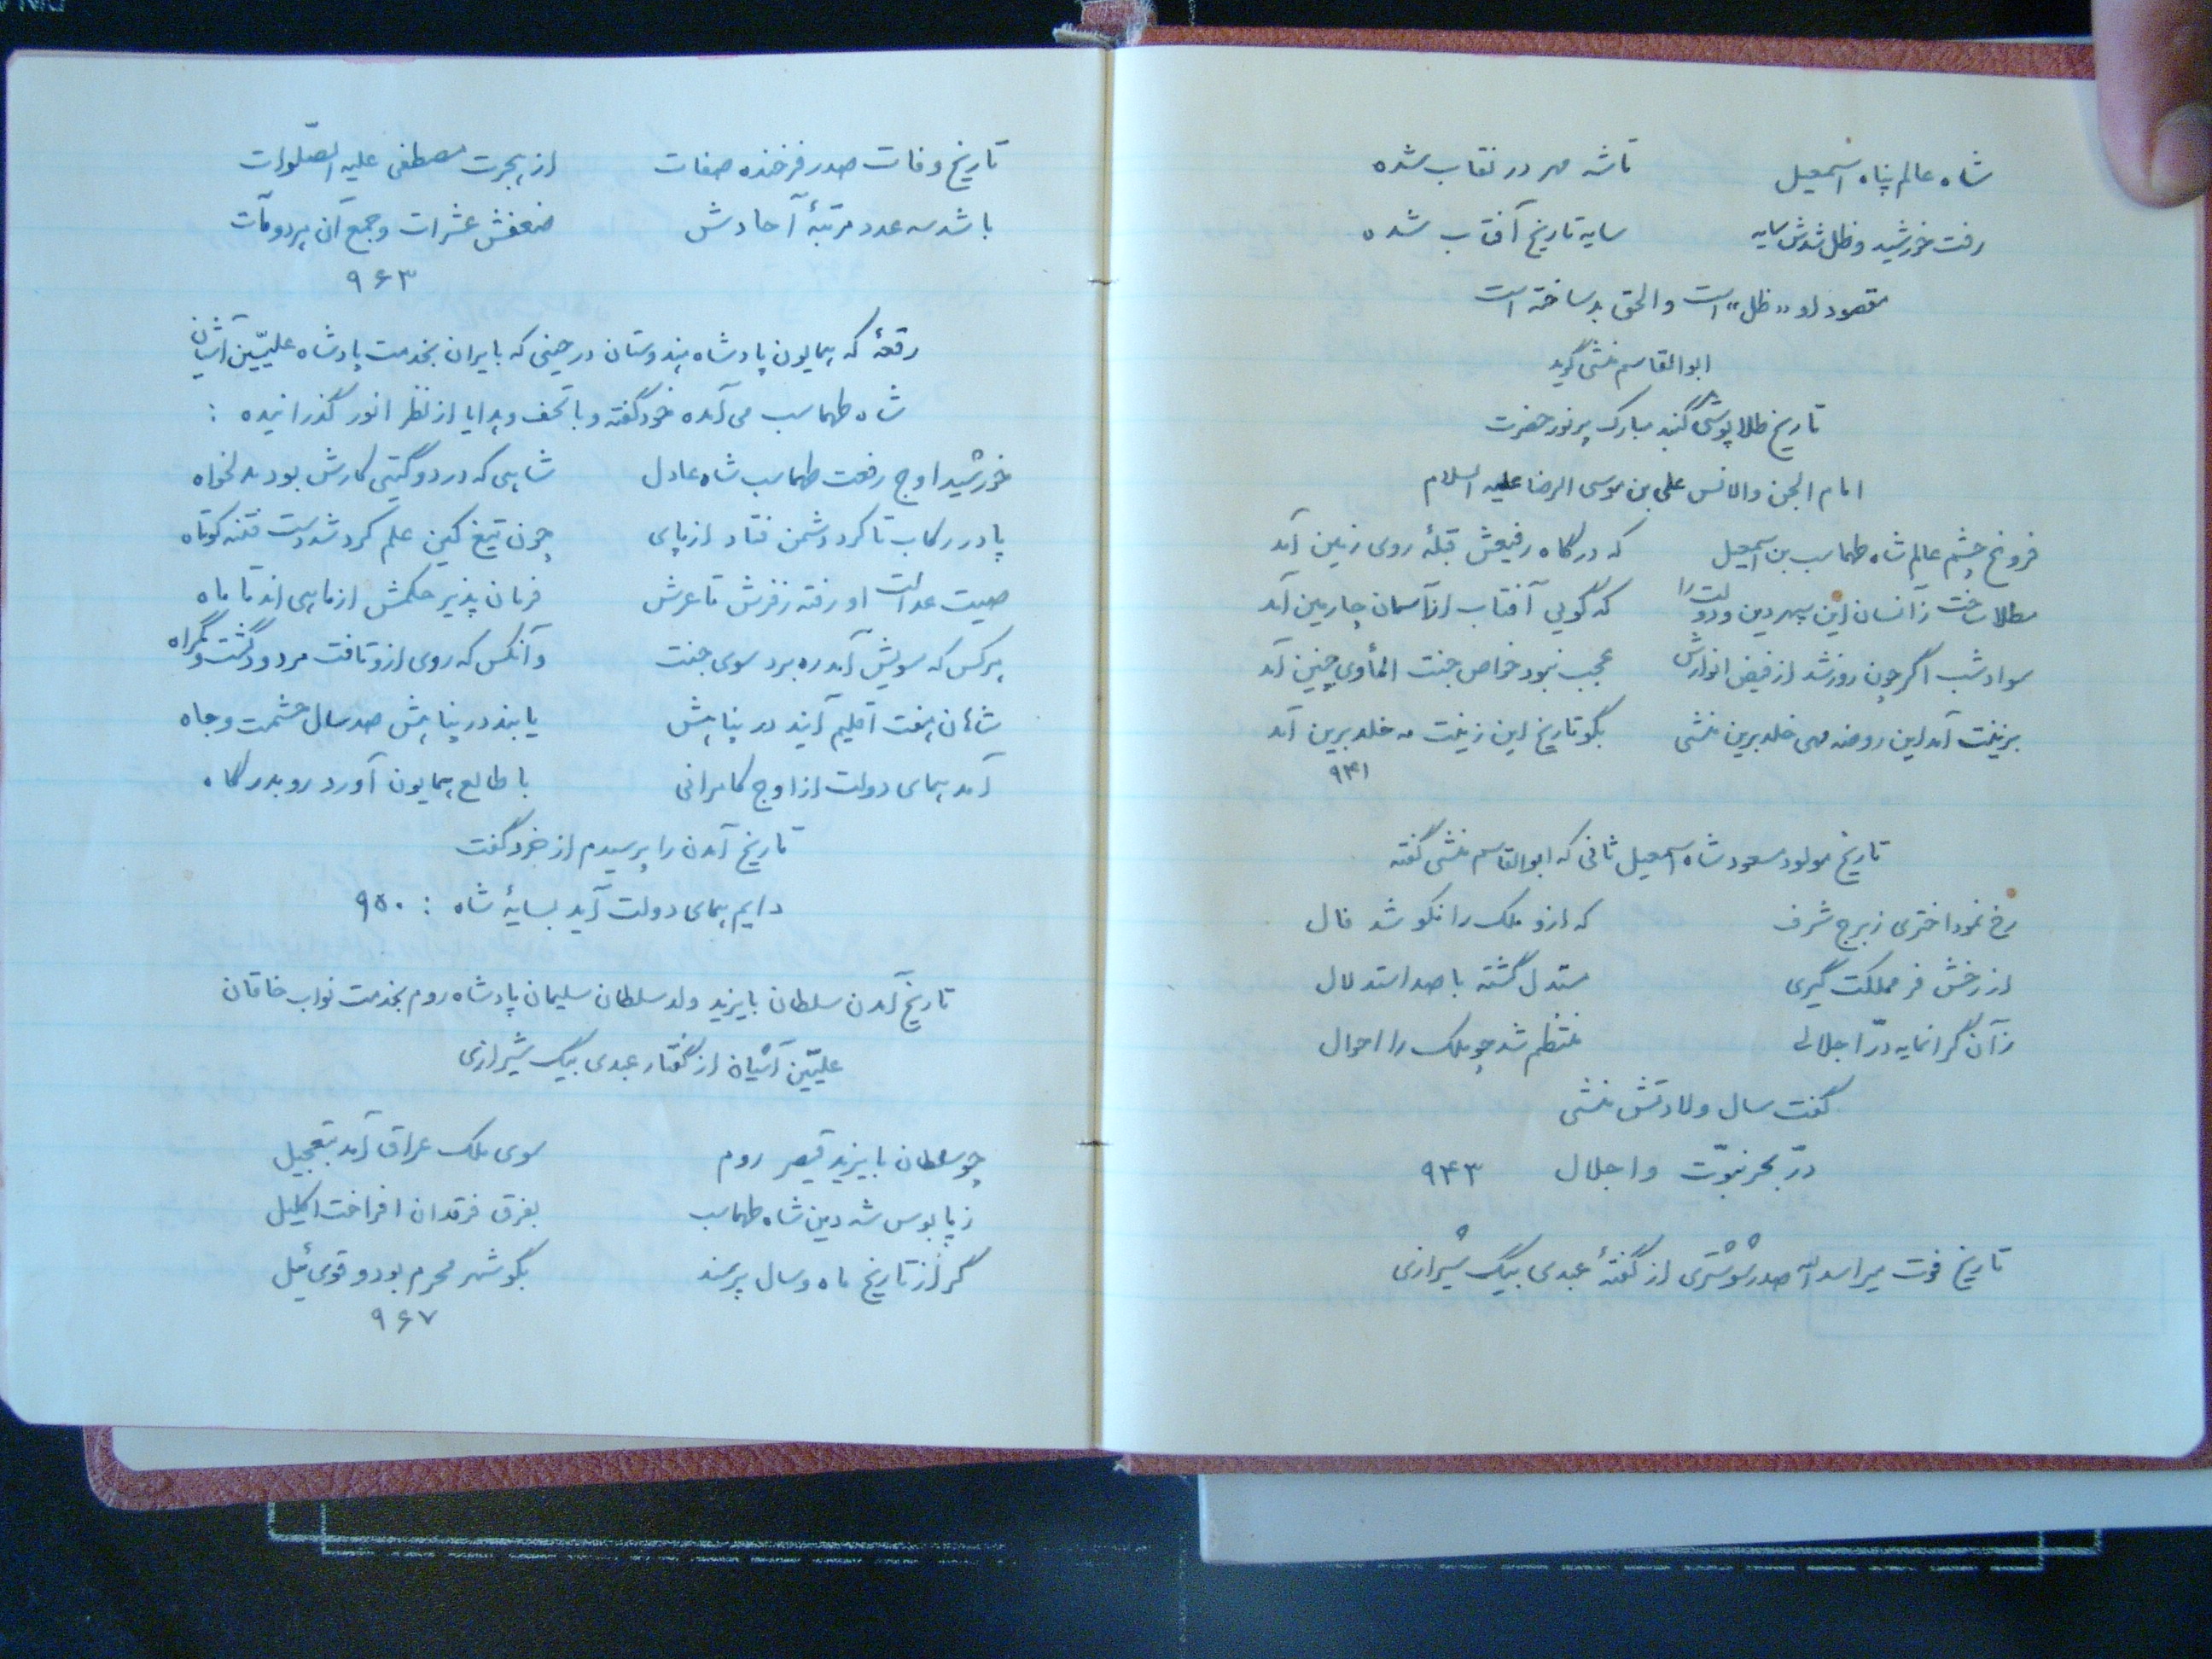 شاه عالم پناه اسمعیل تا شه مهر در نقاب شده
رفت خورشید و ظل شدش سایه سایه تاریخ آفتاب شده
مقصود او «ظل» است والحق بد ساخته است
ابوالقاسم منشی گوید
تاریخ طلا پوشی گنبد مبارک پر نور حضرت
امام الجن والانس علی بن موسی الرضا علیه السلام
فروغ چشم عالم شاه طهماسب بن اسمعیل که درگاه رفیعش قبلهٔ روی زمین آمد
مطلا ساخت زآنسان این سپهر دین و دولت را که گویی آفتاب از آسمان چارمین آمد
سواد شب اگر چون روز شد از فیض انوارش عجب نبود خواص جنت المأوی چنین آمد
بزینت آمد این روضه مهی خلد برین منشی بگو تاریخ این زینت مه خلد برین آمد
۹۴۱
تاریخ مولود مسعود شاه اسمعیل ثانی که ابوالقاسم منشی گفته
رخ نمود اختری ز برج شرف که ازو ملک را نکو شد فال
از رخش فر مملکت گیری مستدل گشته با صد استدلال
زآن گرانمایه درّ اجلالی منتظم شد چو ملک را احوال
گفت سال ولادتش منشی
درّ بحر نبوّت و اجلال ۹۴۳
تاریخ فوت میر اسدالله صدر شوشتری از گفتهٔ عبدی بیگ شیرازی
تاریخ وفات صدر فرخنده صفات از هجرت مصطفی علیه الصّلوات
باشد سه عدد مرتبهٔ آحادش ضعفش عشرات و جمع آن هر دو مآت
۹۶۳
رقعهٔ که همایون پادشاه هندوستان در حینی که بایران بخدمت پادشاه علیّین آشیان
شاه طهماسب می‌آمده خود گفته و با تحف و هدایا از نظر انور گذرانیده :
خورشید اوج رفعت طهماسب شاه عادل شاهی که در دو گیتی کارش بود بدلخواه
پا در رکاب تا کرد دشمن فتاد از پای چون تیغ کین علم کرد شد دست فتنه کوتاه
صیت عدالت او رفته ز فرش تا عرش فرمان پذیر حکمش از ماهی‌اند تا ماه
هر کس که سویش آمد ره برد سوی جنت و آنکس که روی ازو تافت مردود گشت و گمراه
شاهان هفت اقلیم آیند در پناهش یابند در پناهش صد سال حشمت و جاه
آمد همای دولت از اوج کامرانی با طالع همایون آورد رو بدرگاه
تاریخ آمدن را پرسیدم از خرد گفت
دایم همای دولت آید بسایهٔ شاه : ۹۵۰
تاریخ آمدن سلطان بایزید ولد سلطان سلیمان پادشاه روم بخدمت نواب خاقان
علیّین آشیان از گفتار عبدی بیگ شیرازی
چو سلطان بایزید قیصر روم سوی ملک عراق آمد بتعجیل
ز پابوس شه دین شاه طهماسب بفرق فرقدان افراخت اکلیل
گر از تاریخ ماه و سال پرسند بگو شهر محرم بود و قوی ئیل
۹۶۷